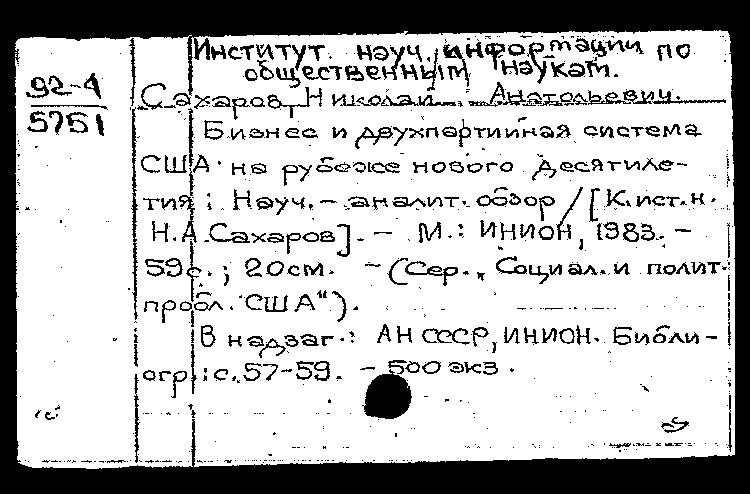 Институт науч. информации по
общественным наукам.
92-4
5751
Сахаров, Николай Анатольевич.
Бизнес и двухпартийная система
США на рубеже нового десятиле-
тия : Науч.- аналит. обзор / [К.ист.н.
Н.А.Сахаров]. - М.: ИНИОН, 1983. -
59с. ; 20см. - (Сер. „Социал. и полит.
пробл. США").
В надзаг.: АН СССР, ИНИОН. Библи-
огр.: с.57-59. - 500 экз.